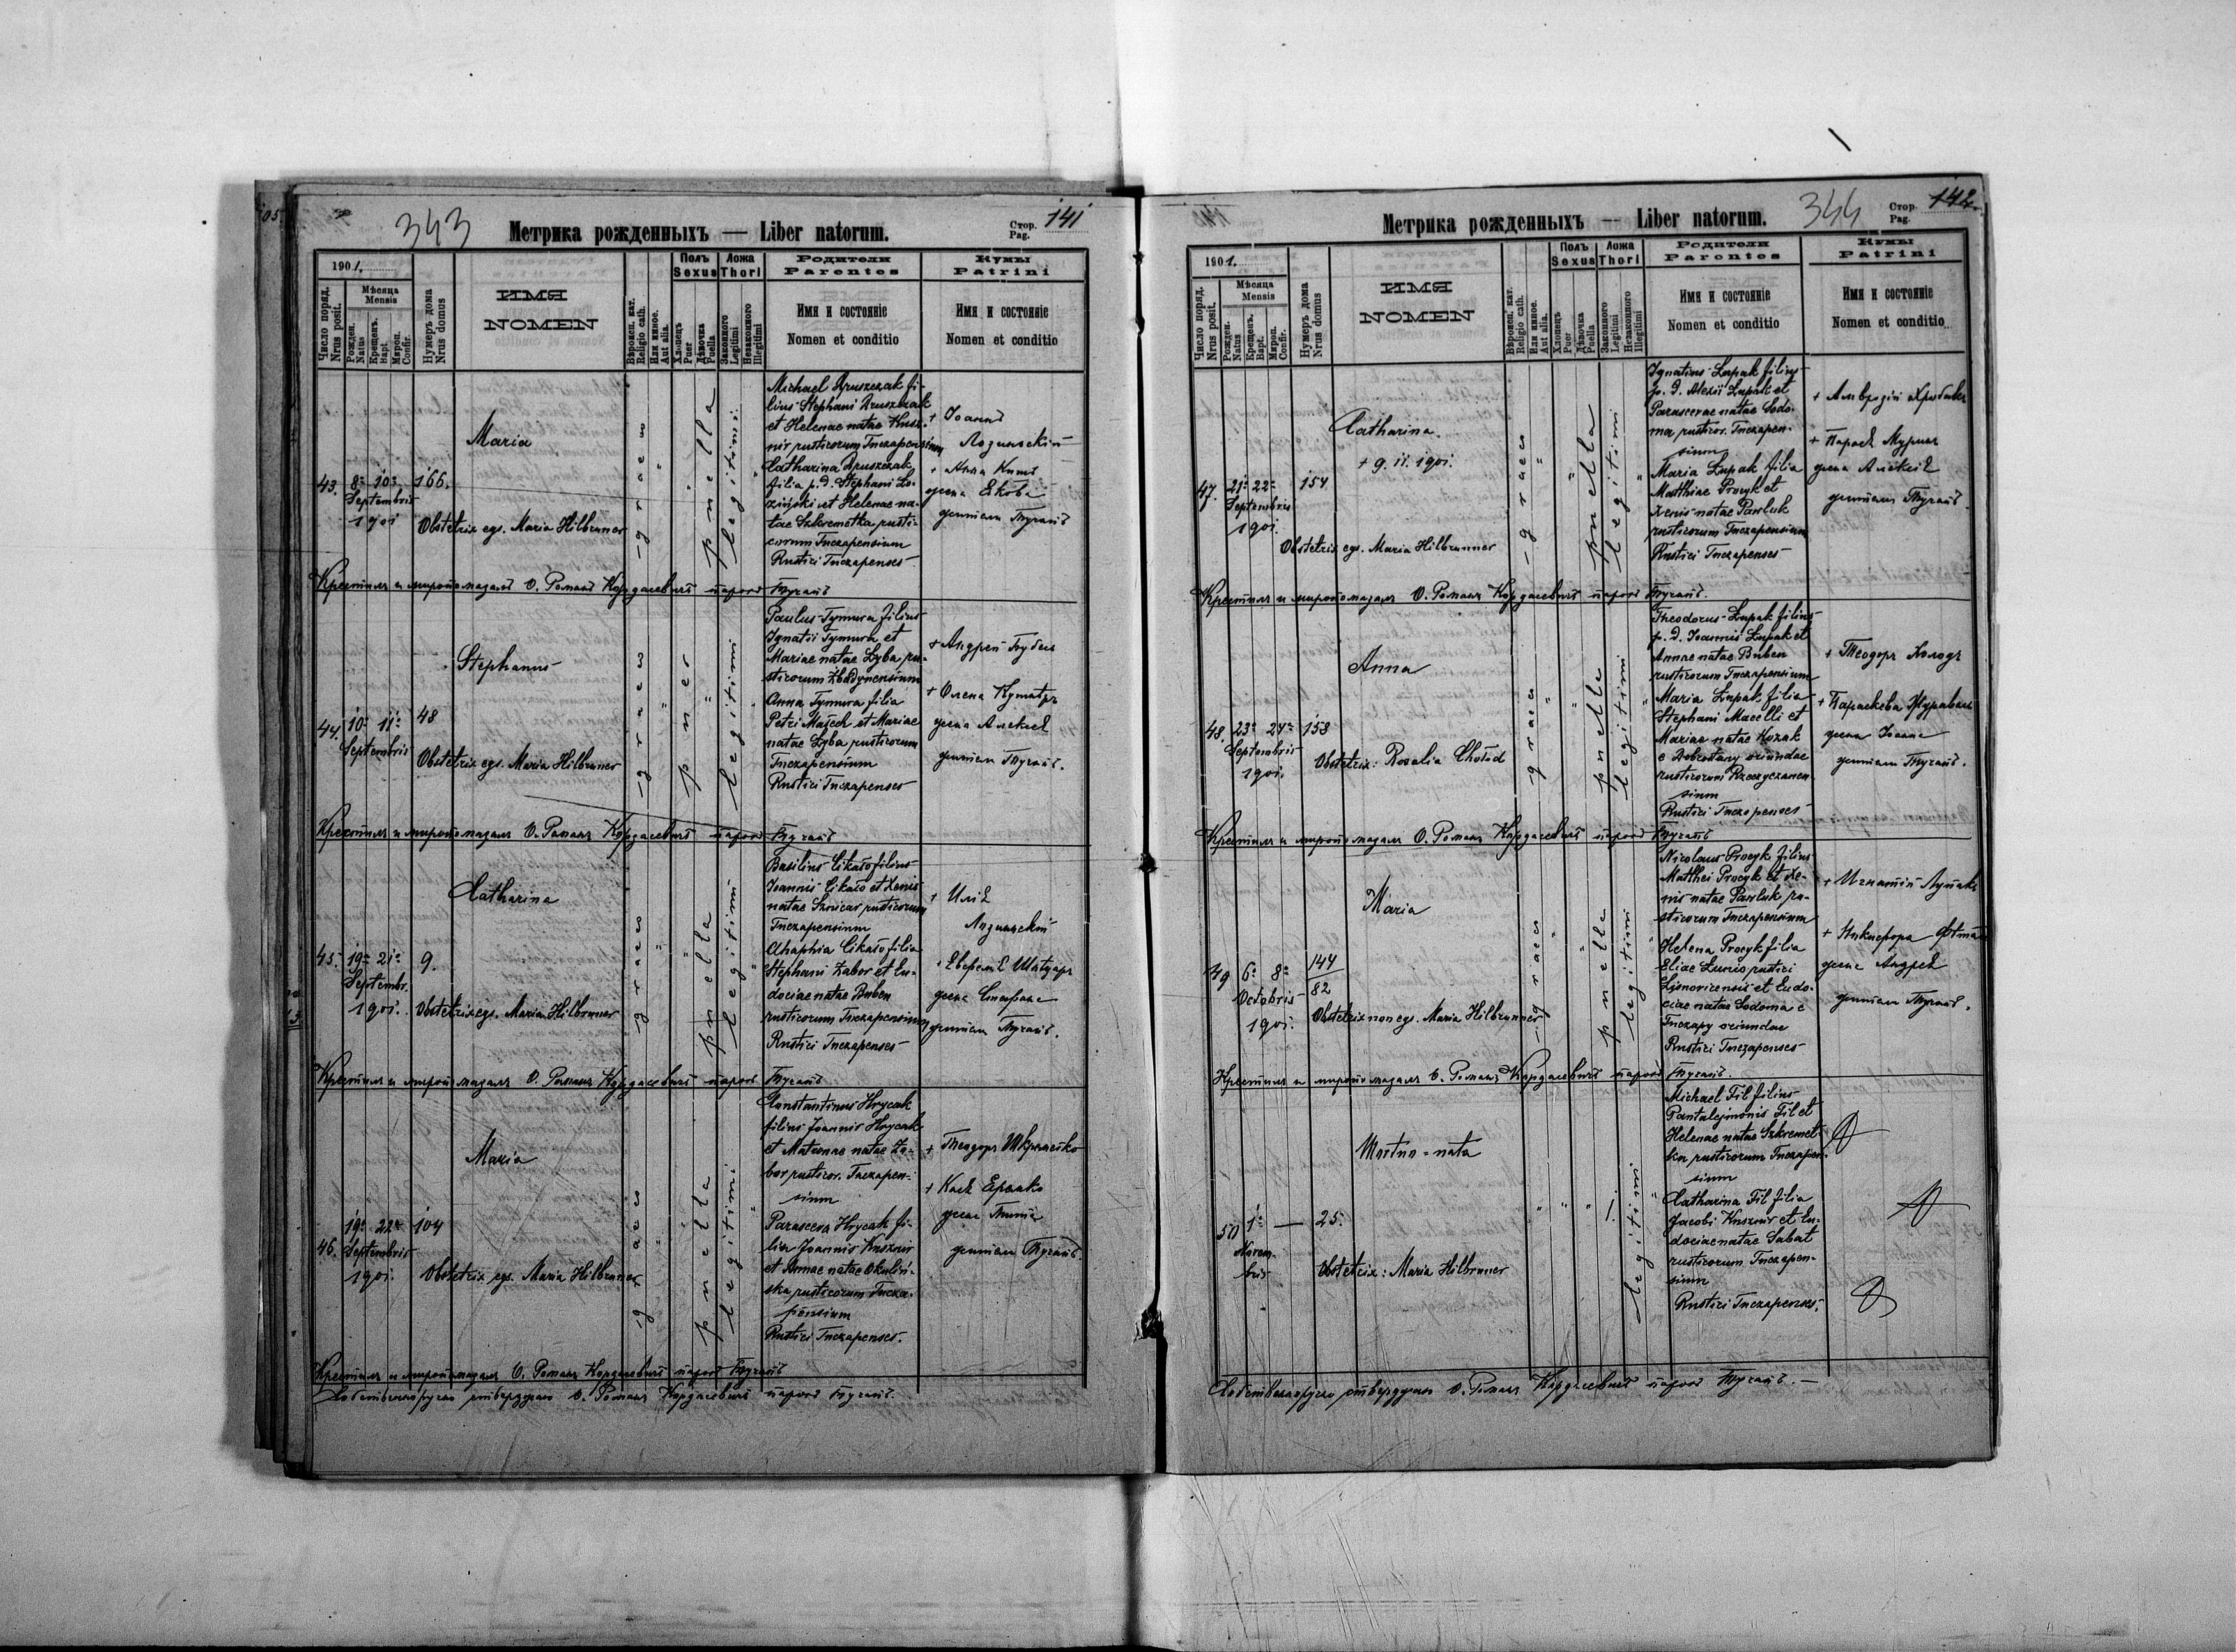 343
Метрика рожденныхъ — Liber natorum.
Стор. Pag. 141
1901.
Число поряд. Nrus posit.
Мѣсяца Mensis
Рожден. Natus
Крещенъ. Bapt.
Мѵроп. Confir.
Нумеръ дома Nrus domus
ИМЯ
NOMEN
Вѣроисп. кат. Religio cath.
Или инное. Aut alia.
Полъ Sexus
Хлопецъ Puer
Дѣвочка Puella
Ложа Thori
Законного Legitimi
Незаконного Illegitimi
Родители
Parentes
Имя и состояніе
Nomen et conditio
Кумы
Patrini
Имя и состояніе
Nomen et conditio
43.
8ª 10ª
Septembris
1901
166.
Maria
Obstetrix egs. Maria Hilbrunner
graeco
puella
legitimi
Michael Druszczak fi-
lius Stephani Druszczak
et Helenae natae Kusz-
nir rusticorum Tuczapensium
Catharina Druszczak
filia p. d. Stephani Ło-
ziński et Helenae na-
tae Szkremetka rusti-
corum Tuczapensium
Rustici Tuczapenses
+ Іоаннъ
Лозинскій
+ Анна
жена Якова
Крестилъ и миропомазалъ О. Романъ Кордасевичъ парох Тучапъ
44.
10ª 11ª
Septembris
48
Stephanus
Obstetrix egs. Maria Hilbrunner
graeco
puer
legitimi
Paulus Tymura filius
Ignatii Tymura et
Mariae natae Łyba ru-
sticorum
Anna Tymura filia
Petri et Mariae
natae Łyba rusticorum
Tuczapensium
Rustici Tuczapenses
+ Андрей
+ Олена
жена Алексѣя
Тучапъ.
Крестилъ и миропомазалъ О. Романъ Кордасевичъ парох Тучапъ
45.
19ª 21ª
Septembr.
1901.
9.
Catharina
Obstetrix egs. Maria Hilbrunner
graeco
puella
legitimi
Basilius Cikało filius
Joannis Cikało et Xenis
natae rusticorum
Tuczapensium
Ahaphia Cikało filia
Stephani Zabor et Eu-
dociae natae Buben
rusticorum Tuczapensium
Rustici Tuczapenses
+ Илія
Лозинскій
жена Стефана
Тучапъ.
Крестилъ и миропомазалъ О. Романъ Кордасевичъ парох Тучапъ
46.
19ª 22ª
Septembris
1901.
104
Maria
Obstetrix egs. Maria Hilbrunner
graeco
puella
legitimi
Constantinus Hrycak
filius Joannis Hrycak
et Matronae natae Za-
bor rusticor. Tuczapen-
sium
Parasceva Hrycak fi-
lia Joannis Kusznir
et Annae natae Okuliń-
ska rusticorum Tucza-
pensium
Rustici Tuczapenses.
+ Теодоръ
жена
Тучапъ.
Крестилъ и миропомазалъ О. Романъ Кордасевичъ парох Тучапъ
Собственоручно утверджаю О. Романъ Кордасевичъ парох Тучапъ.
Метрика рожденныхъ — Liber natorum.
344
Стор. Pag. 142.
1901.
Число поряд. Nrus posit.
Мѣсяца Mensis
Рожден. Natus
Крещенъ. Bapt.
Мѵроп. Confir.
Нумеръ дома Nrus domus
ИМЯ
NOMEN
Вѣроисп. кат. Religio cath.
Или инное. Aut alia.
Полъ Sexus
Хлопецъ Puer
Дѣвочка Puella
Ложа Thori
Законного Legitimi
Незаконного Illegitimi
Родители
Parentes
Имя и состояніе
Nomen et conditio
Кумы
Patrini
Имя и состояніе
Nomen et conditio
47.
21ª 22ª
Septembris
1901.
154
Catharina.
+ 9. 11. 1901.
Obstetrix egs. Maria Hilbrunner
graeco
puella
legitimi
Ignatius Łupak filius
p. d. Alexii Łupak et
Parascevae natae Sodo-
ma rusticor. Tuczapen-
sium
Maria Łupak filia
Matthiae Procyk et
Xenis natae Pawluk
rusticorum Tuczapensium
Rustici Tuczapenses
+ Амврозій
+ Параск.
жена Алексія
Тучапъ.
Крестилъ и миропомазалъ О. Романъ Кордасевичъ парох Тучапъ.
48.
23ª 24ª
Septembris
1901.
158
Anna
Obstetrix: Rosalia Chołod
graeco
puella
legitimi
Theodorus Łupak filius
p. d. Joannis Łupak et
Annae natae Buben
rusticorum Tuczapensium
Maria Łupak filia
Stephani Macelli et
Mariae natae Kozak
e Dobrostany oriundae
rusticorum
sium
Rustici Tuczapenses
+ Теодоръ Холодъ
+ Параскева
жена Іоанна
Тучапъ.
Крестилъ и миропомазалъ О. Романъ Кордасевичъ парох Тучапъ
49
6ª 8ª
Octobris
1901.
144
82
Maria
Obstetrix non egs. Maria Hilbrunner
graeco
puella
legitimi
Nicolaus Procyk filius
Matthei Procyk et Xe-
nis natae Pawluk ru-
sticorum Tuczapensium
Helena Procyk filia
Eliae Łunio rustici
et Eudo-
ciae natae Sodoma e
Tuczapy oriundae
Rustici Tuczapenses
+ Игнатій Лупакъ
жена Андрея
Тучапъ.
Крестилъ и миропомазалъ О. Романъ Кордасевичъ парох Тучапъ.
50
1ª —
Novem-
bris
25.
Mortuo-nata
Obstetrix: Maria Hilbrunner
1.
legitimi
Michael Fil filius
Pantalejmonis Fil et
Helenae natae Szkremet-
ka rusticorum Tuczapen-
sium
Catharina Fil filia
Jacobi Kusznir et Eu-
dociae natae Sabat
rusticorum Tuczapen-
sium
Rustici Tuczapenses.
Собственоручно утверджаю О. Романъ Кордасевичъ парох Тучапъ. —